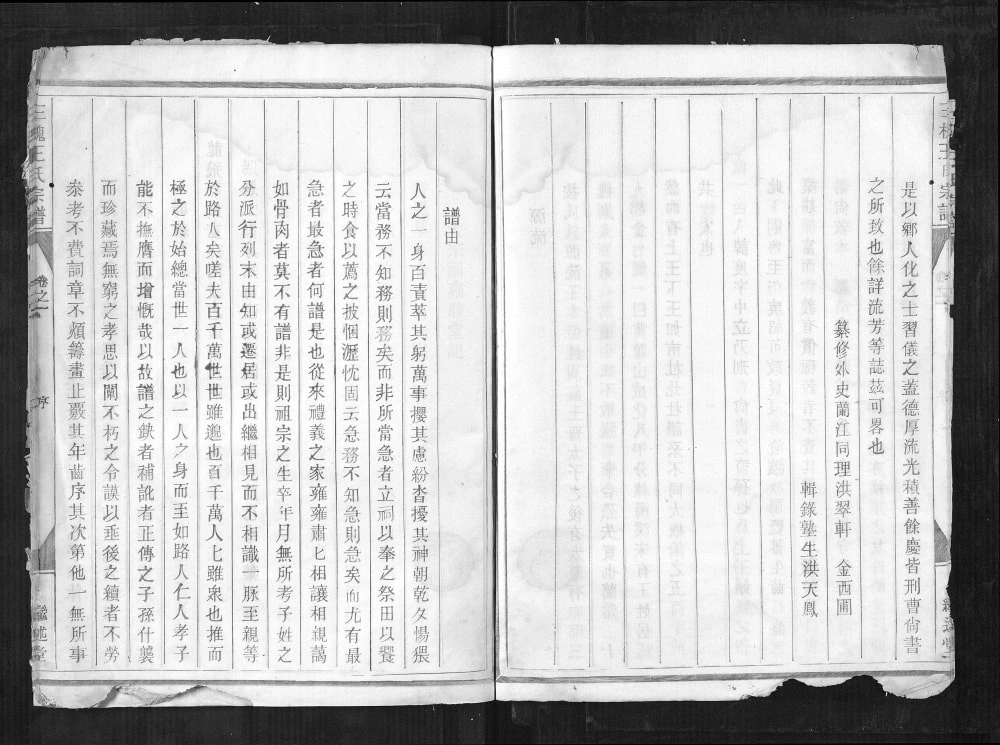 是以鄉人化之士習儀之蓋德厚流光積善餘慶皆刑曹尙書
之所致也餘詳流芳等誌茲可畧也
纂修外史蘭江同理洪翠軒 金西圃
輯錄塾生洪天鳳
譜由
人之一身百責萃其躬萬事攖其慮紛沓擾其神朝乾夂惕猥
云當務不知務則務矣而非所當急者立祠以奉之祭田以饗
之時食以薦之披悃瀝忱固云急務不知急則急矣而尤有最
急者最急者何譜是也從來禮義之家雍雍肅匕相讓相親藹
如骨肉者莫不有譜非是則祖宗之生卒年月無所考子姓之
分派行列末由知或遷居或出繼相見而不相識一脉至親等
於路人矣嗟夫百千萬世世雖邈也百千萬人匕雖衆也推而
極之於始總當世一人也以一人之身而至如路人仁人孝子
能不撫膺而增慨哉以故譜之缺者補訛者正傳之子孫什襲
而珍藏焉無窮之孝思以闡不朽之令謨以垂後之續者不勞
叅考不費詞章不煩籌畫止覈其年齒序其次第他一無所事
三槐王氏宗譜
卷之一
序
繼述堂